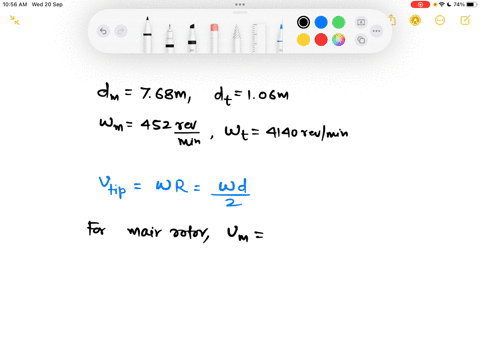 10:56 AM Wed 20 Sep
74%
dₘ = 7.68m, dₜ = 1.06m
ωₘ = 452 rev/min, ωₜ = 4140 rev/min
Vₜᵢₚ = ωR = ωd/2
For mair rotor, υₘ =